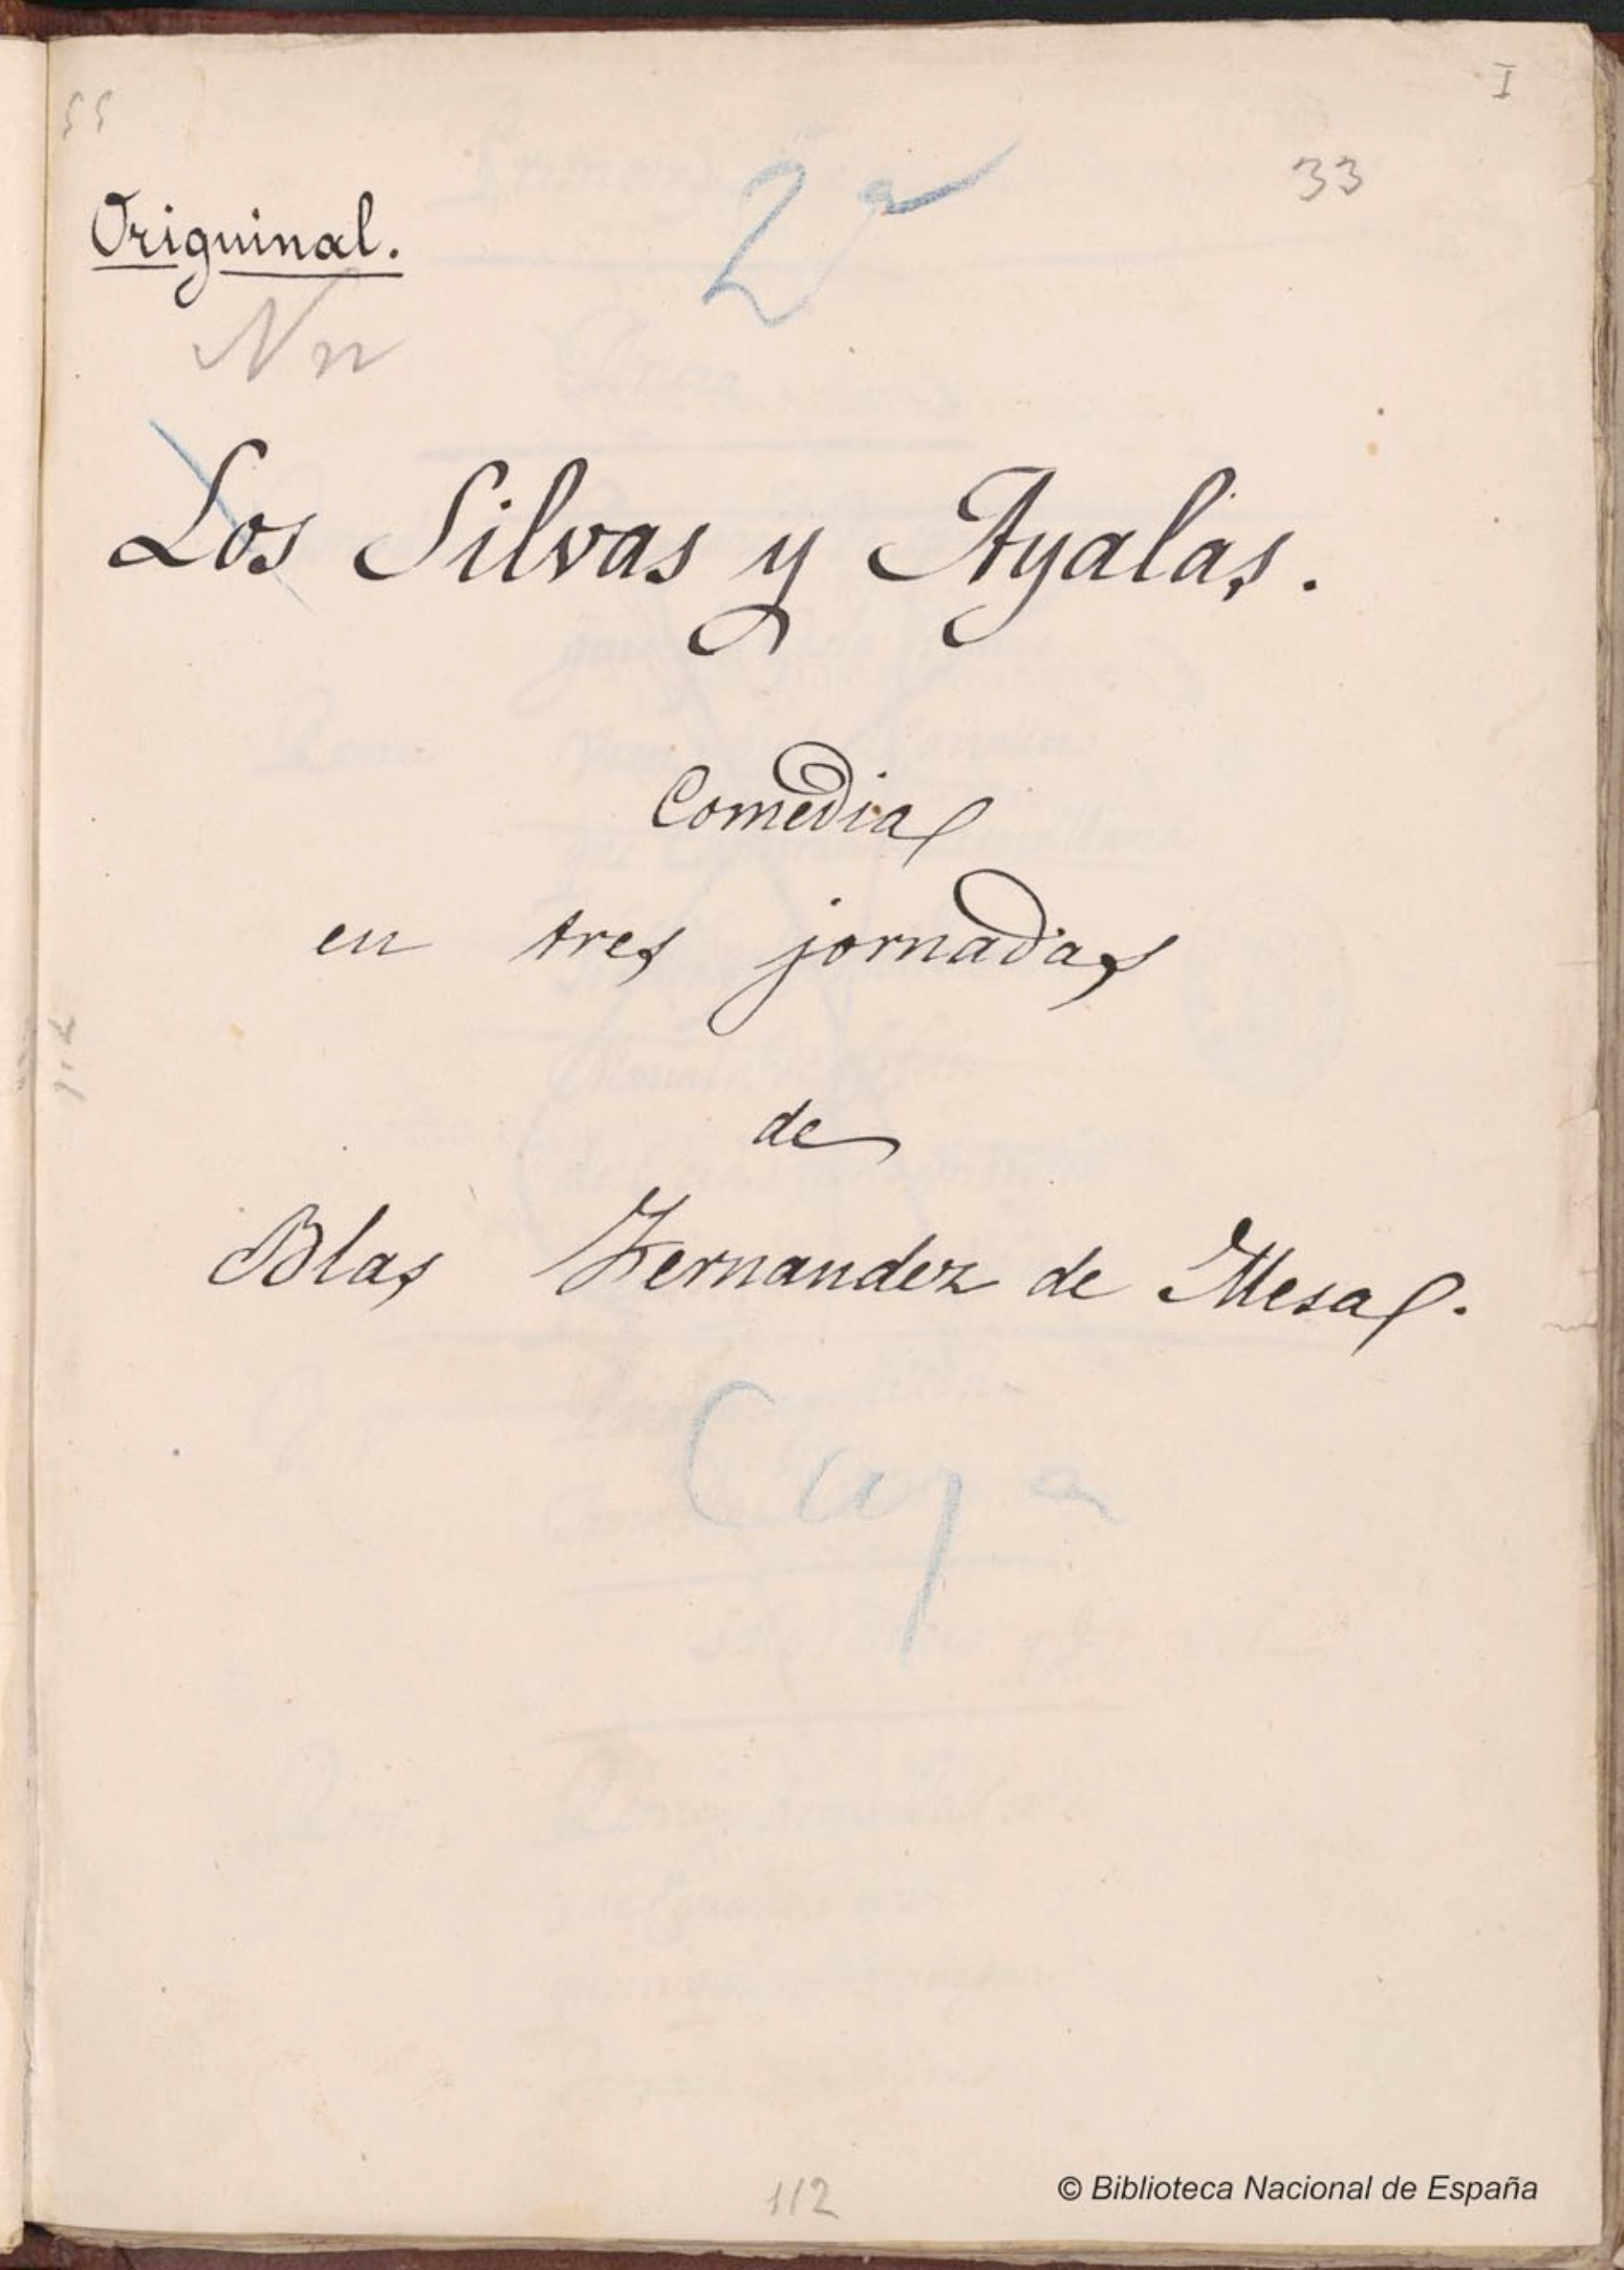 I
55
33
2ª
Originginal.
Nn
Los Silvas y Ayalas.
Comedia
en tres jornadas
de
Blas Fernandez de Mesa.
Caja
112
© Biblioteca Nacional de España